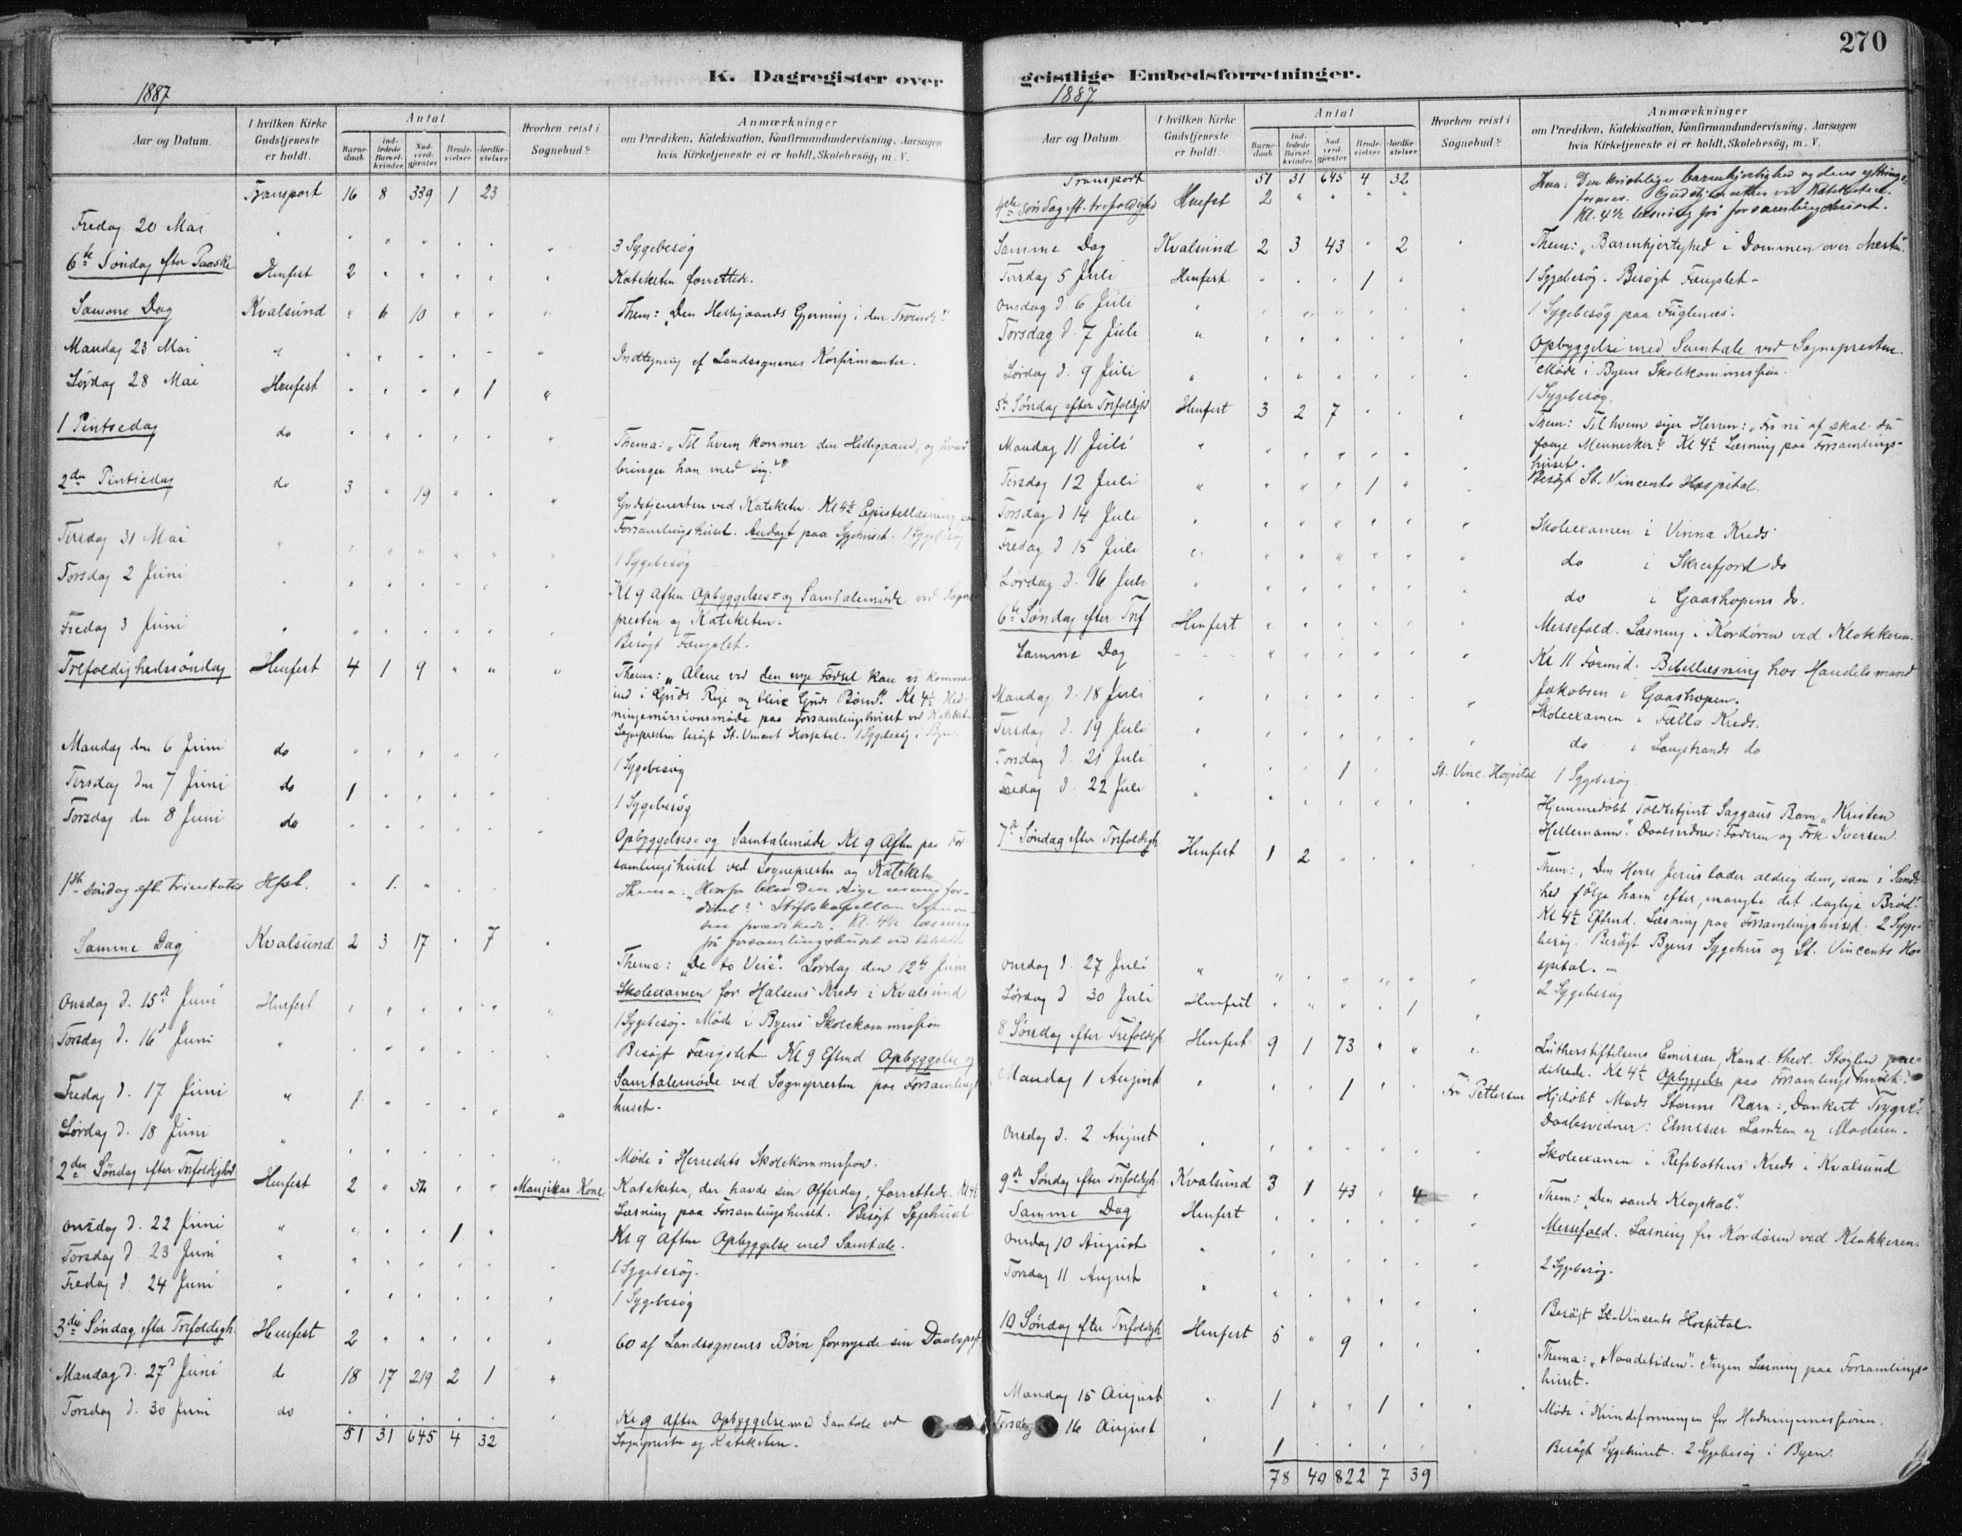 270
K. Dagregister over geistlige Embedsforretninger.
1887
Aar og Datum.
I hvilken Kirke Gudstjeneste er holdt.
Antal
Barnedaab.
Indledede Barselkvinder.
Nadverdgjester
Brudevielser.
Jordfæstelser.
Hvorhen reist i Sognebud?
Anmærkninger
om Prædiken, Katekisation, Konfirmandundervisning, Aarsagen
hvis Kirketjeneste ei er holdt, Skolebesøg, m. V.
Transport 16 8 339 1 23
Fredag 20 Mai 3 Sygebesøg
6te Søndag efter Paaske Hmfest 2 Kateketen forrettede.
Samme Dag Kvalsund 6 10 Them: "Den Helligaands Gjerning i den Troende"
Mandag 23 Mai Indtegning af Landsognenes Konfirmanter.
Lørdag 28 Mai Hmfest 1
1 Pintsedag do Thema: "Til hvem kommer den Helligaand, og hvad
bringer han med sig?"
2den Pintsedag do 3 19 Gudstjenesten ved Kateketen. Kl 4½ Epistellæsning paa
Forsamlingshuset. Andagt paa Sygehuset. 1 Sygebesøg
Tirsdag 31 Mai 1 Sygebesøg
Torsdag 2 Juni Kl 9 Aften Opbyggelses- og Samtalemøde ved Sogne-
presten og Kateketen.
Fredag 3 Juni Besøgt Fængslet.
Trefoldighedssøndag Hmfest 4 1 9 Them: "Alene ved den nye Fødsel kan vi komme
ind i Guds Rige og blive Guds Børn". Kl 4½ Hed-
ningemissionsmøde paa Forsamlingshuset ved Kateket.
Sognepresten besøgt St. Vincent Hospital. 1 Sygebesøg i Byen.
Mandag den 6 Juni do 1 Sygebesøg
Tirsdag den 7 Juni do 1 1 Sygebesøg
Torsdag den 8 Juni do Opbyggelses- og Samtalemøde Kl 9 Aften paa For
samlingshuset ved Sognepresten og Kateketen
1ste søndag eft. trinitatis Hfst. 1. Thema: "Hvorfor blev den rige mand for-
dømt?" Stiftskapellan
prædikede. Kl. 4½ læsning
på forsamlingshuset ved kateketen
Samme Dag Kvalsund 2 3 17 7 Thema: "De to Veie". Lørdag den 12te Juni
Skoleexamen for Halsens Kreds i Kvalsund
Onsdag d. 15de Juni Hmfest 1 Sygebesøg. Møde i Byens Skolekommission
Torsdag d. 16 Juni Besøgt Fængslet. Kl 9 Eftmd Opbyggelse og
Fredag d. 17 Juni 1. Samtalemøde ved Sognepresten paa Forsamlings
huset.
Lørdag d. 18 Juni Møde i Herredets Skolekommission.
2den Søndag efter Trefoldighed Hmfest 2 32 Kone Kateketen, der havde sin Offerdag, forrettede. Kl 4½
Læsning paa Forsamlingshuset. Besøgt Sygehuset
Onsdag d. 22 Juni 1 Kl 9 Aften Opbyggelse med Samtale.
Torsdag d. 23 Juni 1 Sygebesøg.
Fredag d. 24 Juni 1 Sygebesøg
3die Søndag efter Trefoldigh. Hmfest 2 60 af Landsognenes Børn fornyede sin Daabspagt
Mandag d. 27de Juni do 18 17 219 2 1
Torsdag d. 30 Juni do Kl 9 Aften Opbyggelse med Samtale ved
Sognepresten og Kateketen.
51 31 645 4 32
1887
Aar og Datum
I hvilken Kirke Gudstjeneste er holdt.
Antal
Barnedaab.
Indledede Barselkvinder.
Nadverdgjester
Brudevielser.
Jordfæstelser.
Hvorhen reist i Sognebud?
Anmærkninger
om Prædiken, Katekisation, Konfirmandundervisning, Aarsagen
hvis Kirketjeneste ei er holdt, Skolebesøg, m. V.
Transport 51 31 645 4 32
4de søndag eft. trefoldighed Hmfst 2 Thema: Den kristelige barmhjertighed og dens ytrings-
former. Gudstjenesten ved Kateketen.
Kl. 4½ læsning på forsamlingshuset.
Samme Dag Kvalsund 2 3 43 2 Them: "Barmhjertighed i Dommen over Næsten"
Tirsdag 5 Juli Hmfest 1 1 Sygebesøg. Besøgt Fængslet -
Onsdag d. 6 Juli 1 Sygebesøg paa Fuglenæs.
Torsdag d. 7 Juli Opbyggelse med Samtale ved Sognepresten.
Lørdag d. 9 Juli Møde i Byens Skolekommission.
1 Sygebesøg.
5te Søndag efter Trefoldighd Hmfest 3 2 7 Them: Til hvem siger Herren: "Fra nu af skal du
fange Mennesker"? Kl 4½ Læsning paa Forsamlings-
huset.
Mandag 11 Juli
Tirsdag 12 Juli 1 Besøgt St. Vincents Hospital.
Torsdag d 14 Juli Skoleexamen i Vinna Kreds
Fredag d 15 Juli do i Skreifjord do
Lørdag d. 16 Juli do i Gaashopens do.
6te Søndag efter Tref Hmfest Messefald. Læsning i Kordøren ved Klokkeren.
Samme Dag Kl 11 Formid. Bibellæsning hos Handelsmand
Jakobsen i Gaashopen.
Mandag d. 18 Juli Skoleexamen i Fælla Kreds.
Tirsdag d. 19 Juli do i Langstrands do
Torsdag d. 21 Juli 1 St. Vinc. Hospital 1 Sygebesøg.
Fredag d. 22 Juli Hjemmedøbt Toldbetjent Saggaus Barn "Kristen
Hellemann". Daabsvidner: Faderen og Frk. Iversen.
7de Søndag efter Trefoldigh Hmfest 1 2 Them: "Den Herre Jesus lader aldrig dem, som i Sand-
hed følge ham efter, mangle det daglige Brød".
Kl 4½ Eftmd. Læsning paa Forsamlingshuset. 2 Syge-
besøg. Besøgt Byens Sygehus og St. Vincents Ho-
spital. -
Onsdag d. 27 Juli 2 Sygebesøg
Lørdag d 30 Juli Hmfest 1
8 Søndag efter Trefoldigh Hmfest 9 1 73 Lutherstiftelsens Emissær, Kand. theol. præ-
dikede. Kl 4½ Opbyggelse paa Forsamlingshuset.
Mandag 1 August 1 Fru Pettersen Hjdøbt Mads Barn: "Dankert Trygve".
Daabsvidner: Emissær og Moderen.
Onsdag d. 2 August Skoleexamen i Refsbottens Kreds i Kvalsund
9de Søndag efter Trefoldigh. Kvalsund 3 1 43 4 Them: "Den sande Klogskab".
Samme Dag Hmfest Messefald. Læsning fra Kordøren ved Klokkeren.
Onsdag 10 August 2 Sygebesøg.
Torsdag 11 August Besøgt St. Vincents Hospital.
10 Søndag efter Trefoldigh Hmfest 5 9 Thema: "Naadetiden". Ingen Læsning paa Forsamlings-
huset.
Mandag 15 August 1 1 Møde i Kvindeforeningen for Hedningemissionen.
Torsdag 16 August 1 Besøgt Sygehuset. 2 Sygebesøg i Byen.
78 40 822 7 39